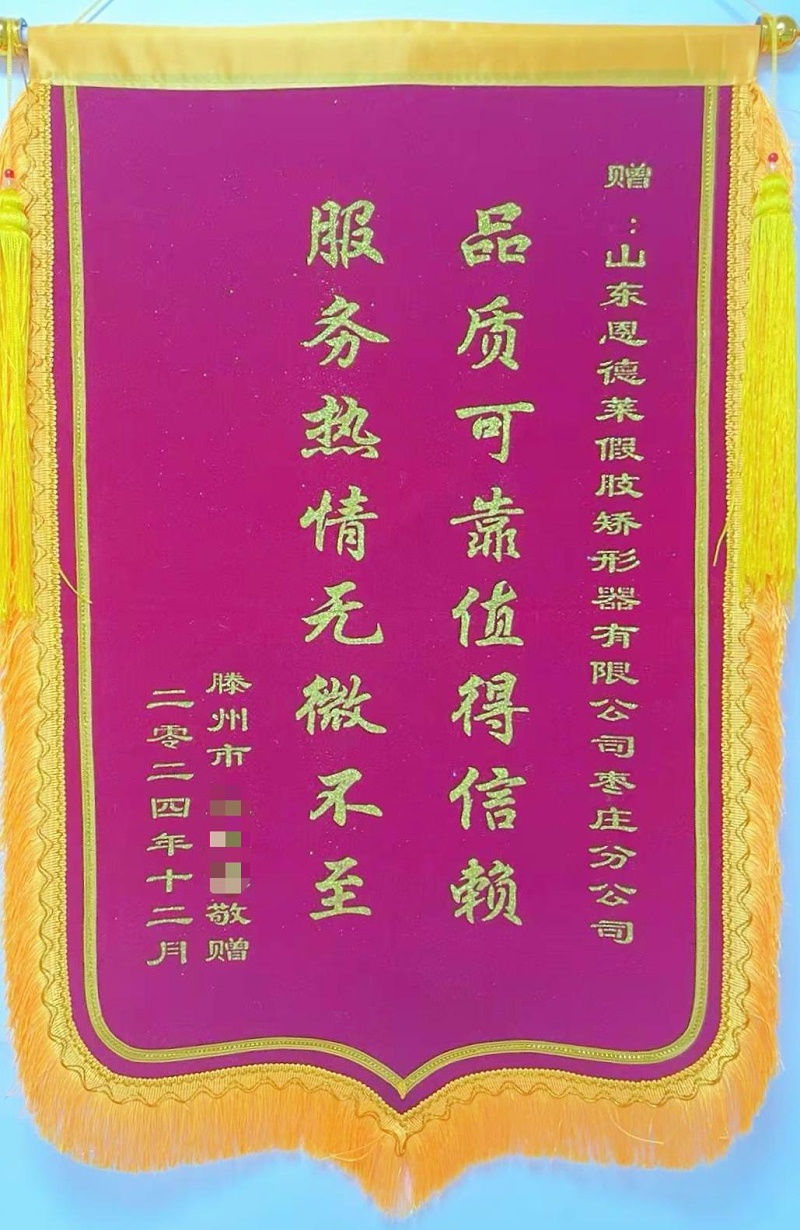 赠：山东恩德莱假肢矫形器有限公司枣庄分公司
品质可靠值得信赖
服务热情无微不至
滕州市 敬赠
二零二四年十二月